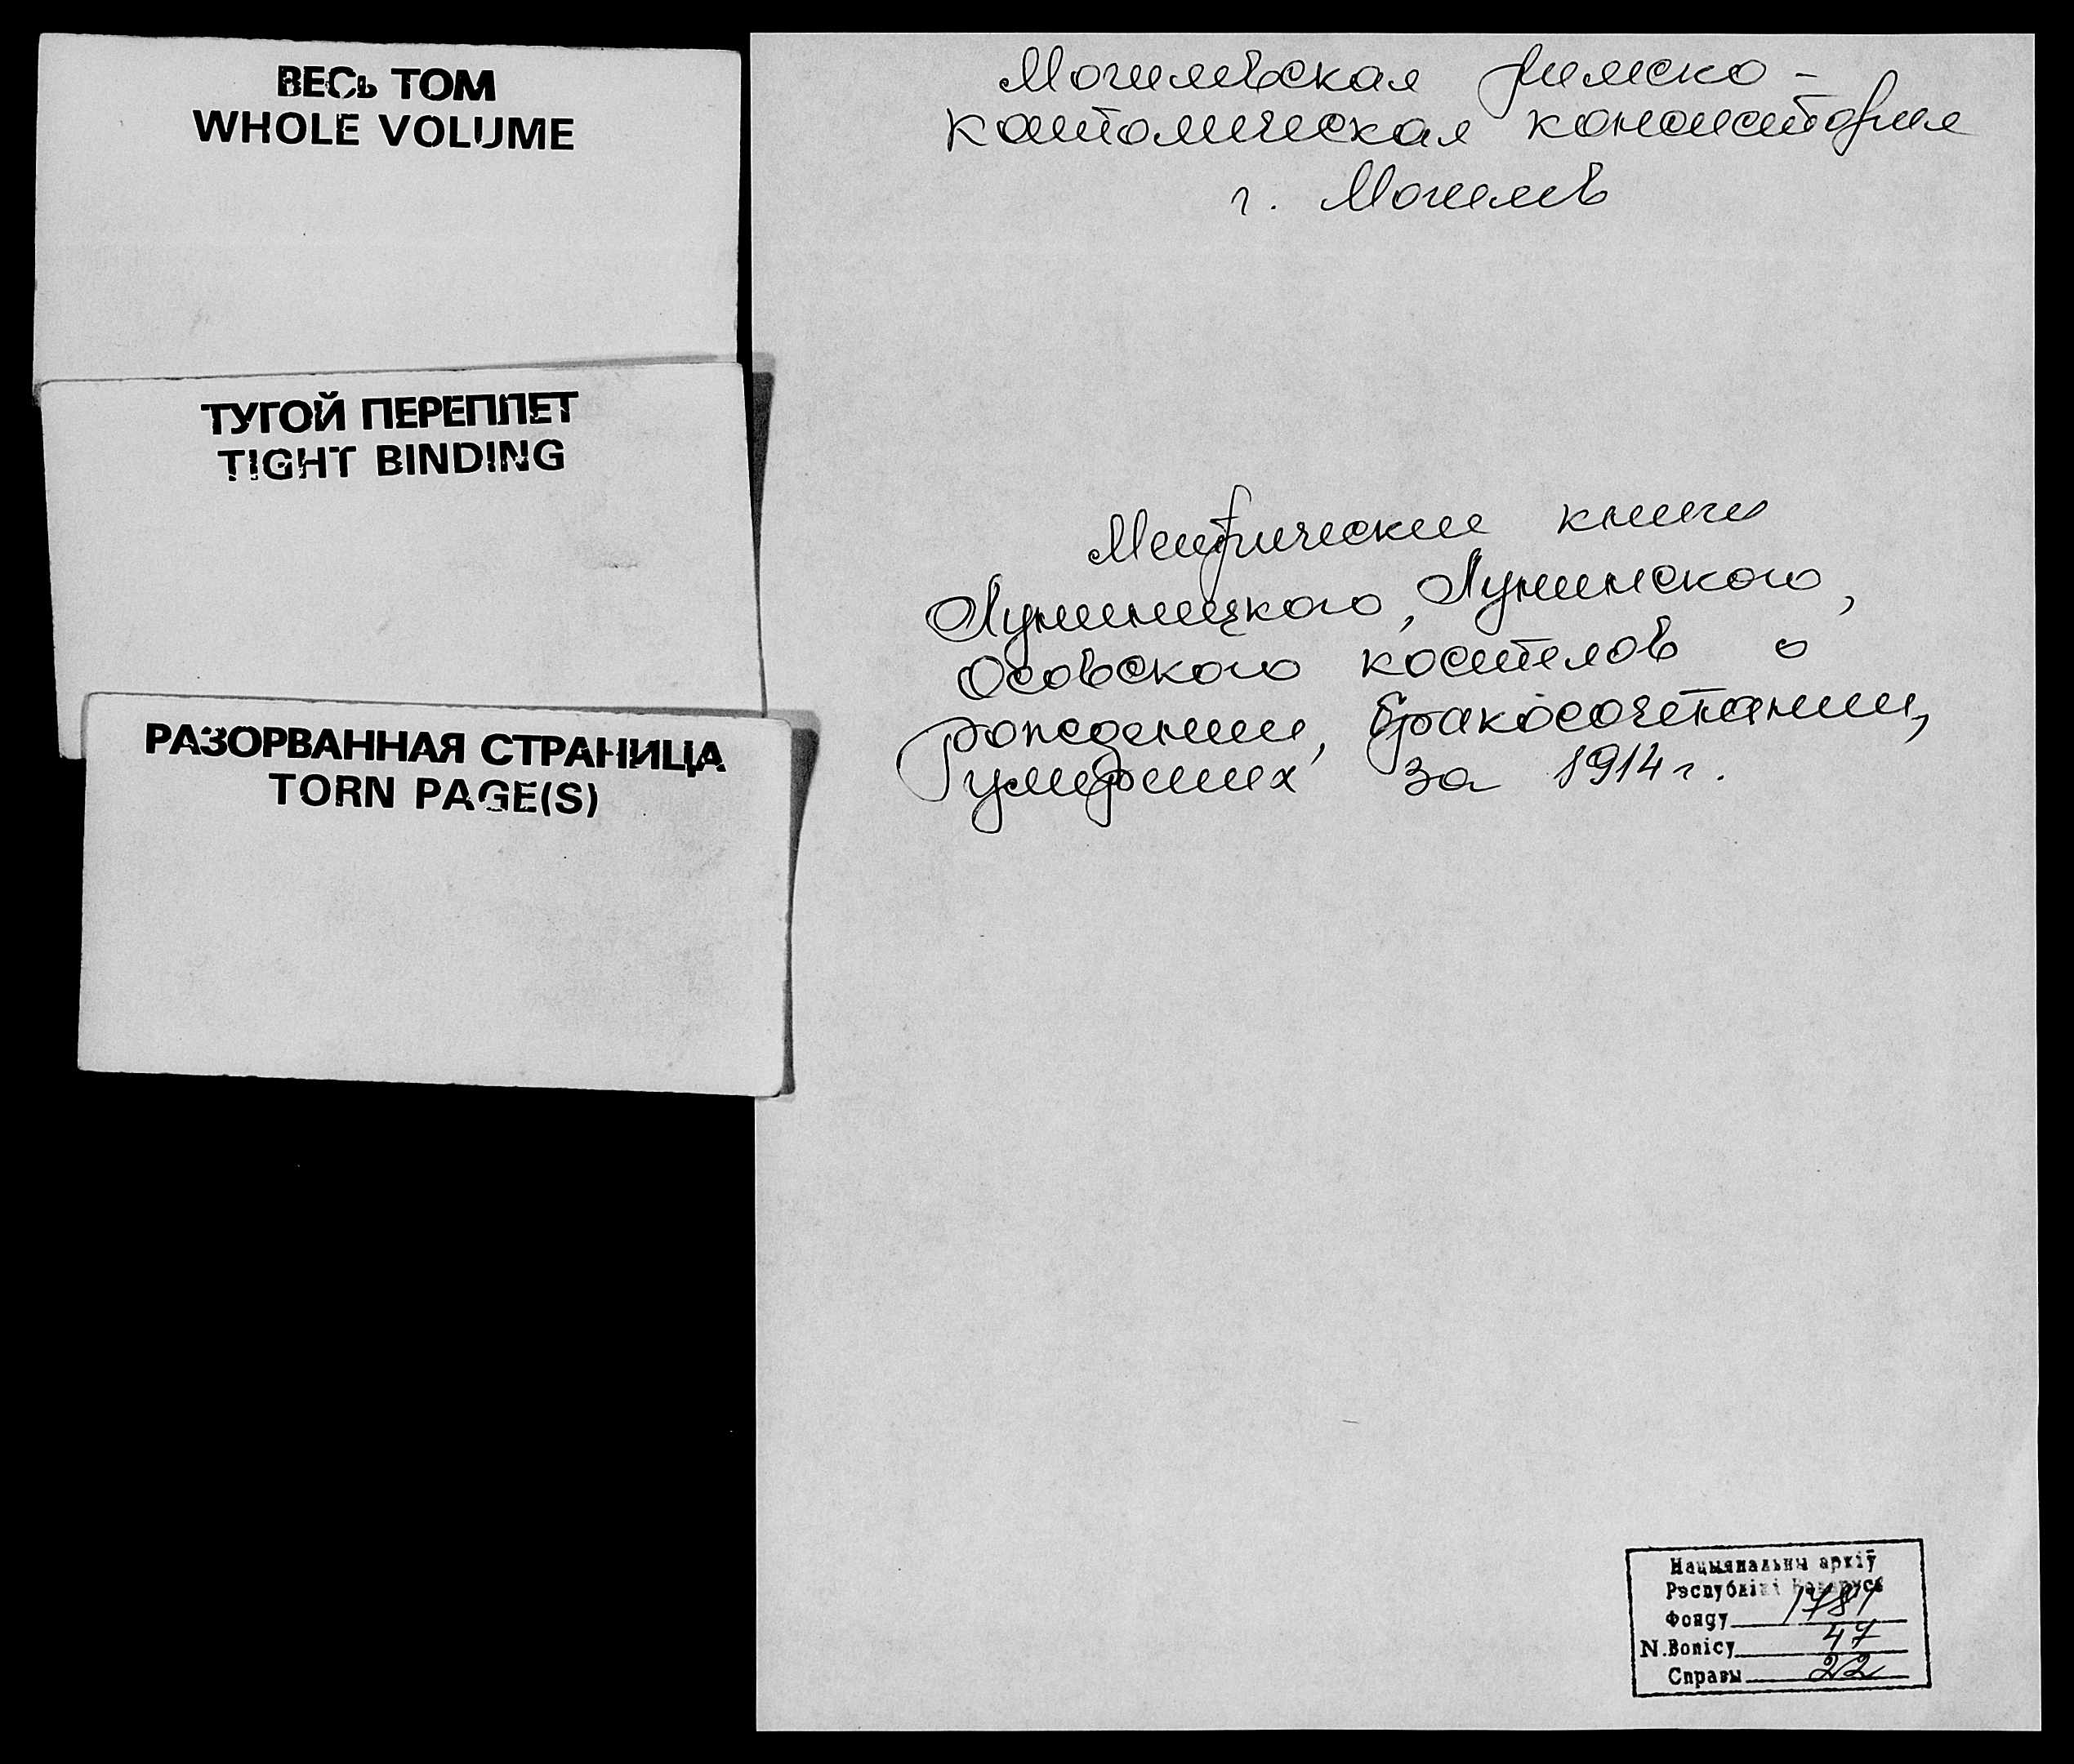 ВЕСЬ ТОМ
WHOLE VOLUME
ТУГОЙ ПЕРЕПЛЕТ
TIGHT BINDING
РАЗОРВАННАЯ СТРАНИЦА
TORN PAGE(S)
Могилевская римско-
католическая консистория
г. Могилев
Метрические книги
Лунинецкого, Лунинского,
Осовского костелов о
рождении, бракосочетании,
умерших за 1914 г.
Нацыянальны архіў
Рэспублікі Беларусь
Фонду 1781
N. Вопісу 47
Справы 22